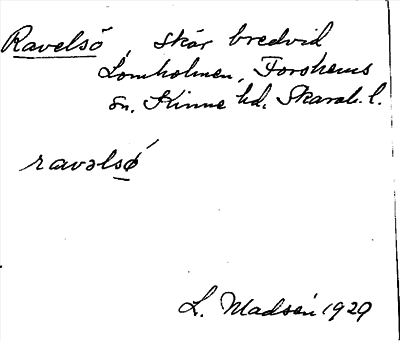 Ravelsö, skär bredvid
Lomholmen, Forshems
sn. Kinne hd. Skarab. l.
ravəlsǿ
L. Madsén 1929